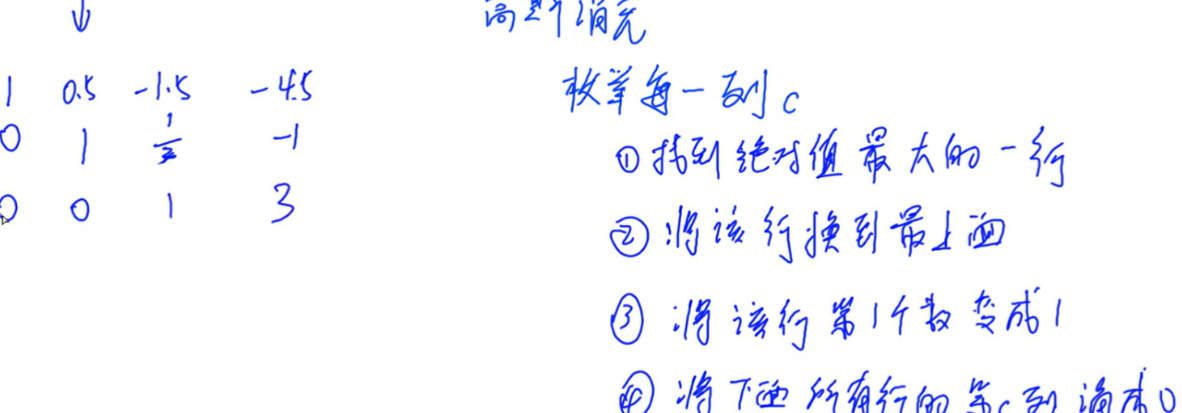 高斯消元
1 0.5 -1.5 -4.5
0 1 1/3 -1
0 0 1 3
枚举每一列c
①找到绝对值最大的一行
②将该行换到最上面
③将该行第1个数变成1
④将下面所有行的第c列消成0